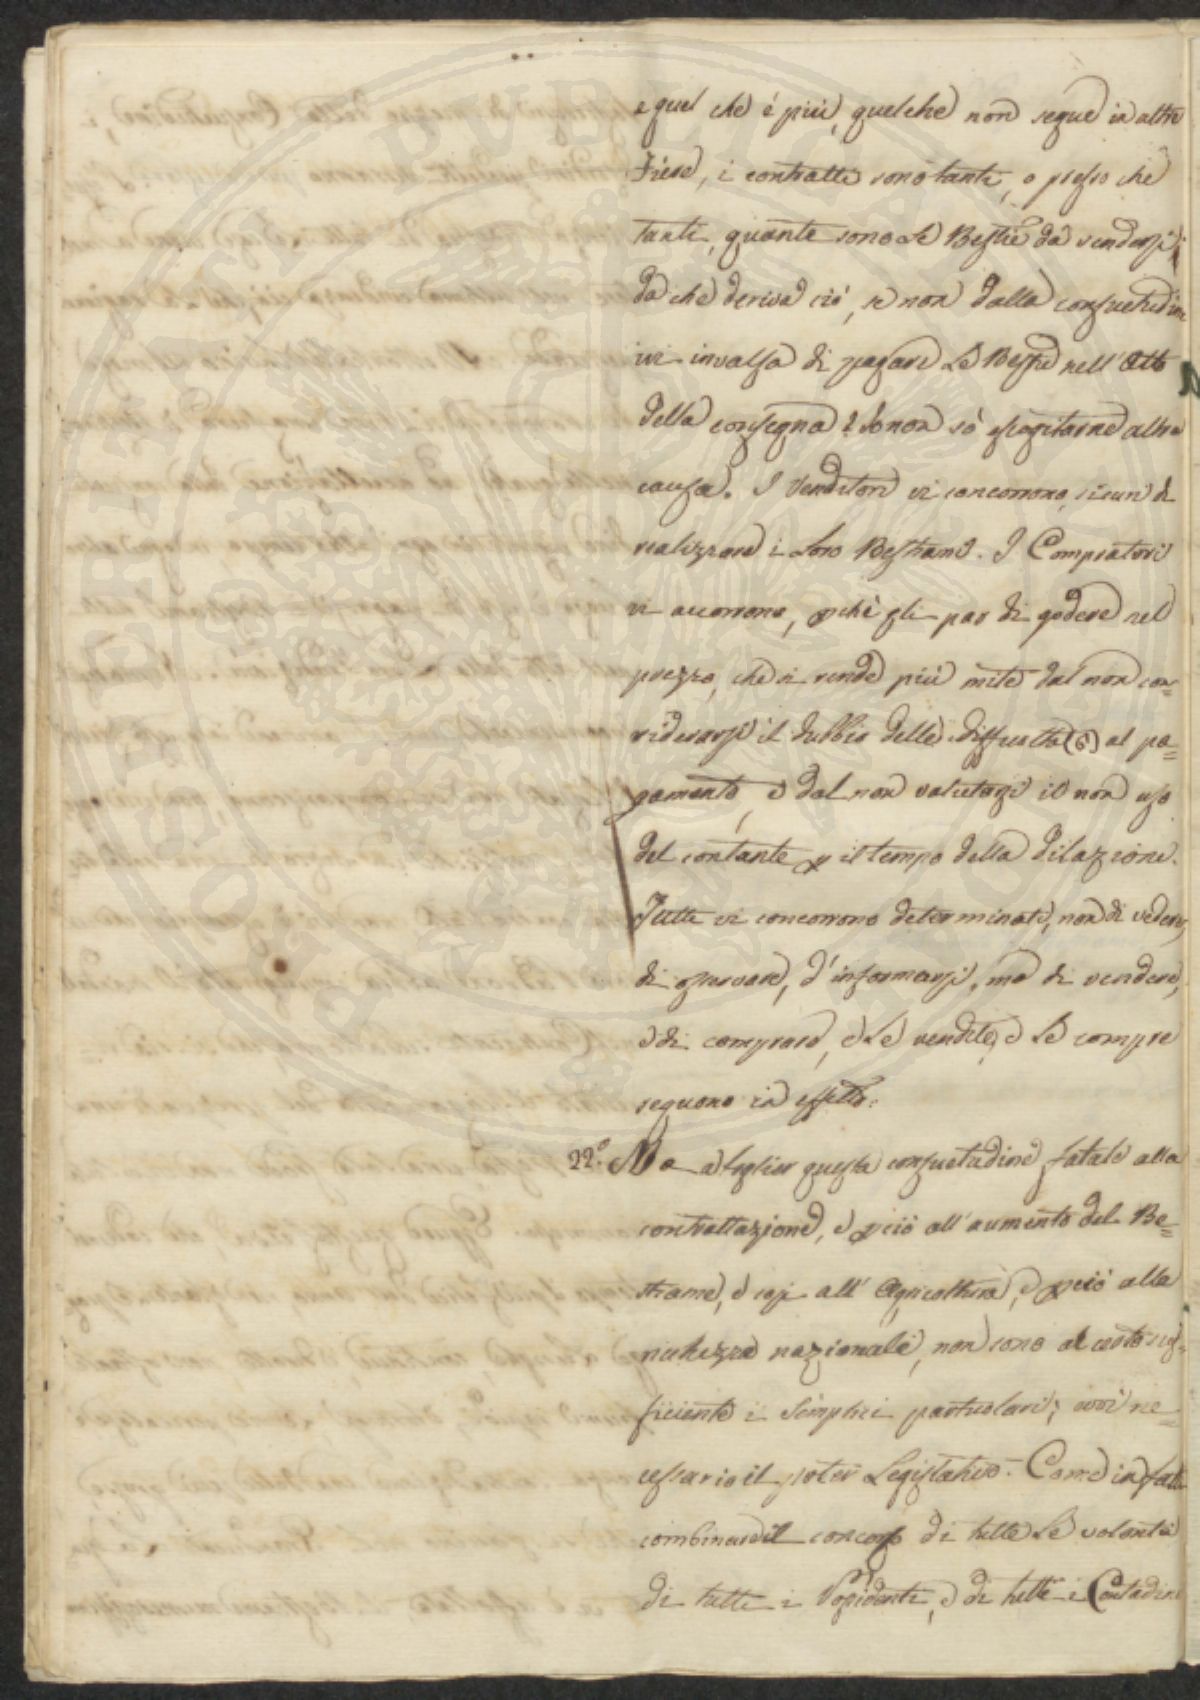 e quel che è più, quelche non segue in altre
Fiere, i contratti sono tanti, o presso che
tanti, quante sono Le Bestie da vendersi;
da che deriva ciò, se non dalla consuetudine
ivi invalsa di pagare Le Bestie nell'Atto
della consegna? Io non sò escogitarne altra
causa. I Venditori vi concorrono, sicuri di
realizzare i Loro Bestiami. I Compratori
vi accorrono, pchè gli par di godere nel
prezzo, che si rende più mite dal non con=
siderarsi il dubbio delle difficoltà (6) al pa=
gamento, e dal non valutarsi il non uso
del contante p il tempo della dilazione.
Tutti vi concorrono determinati, non di vedere,
di osservare, d'informarsi, ma di vendere,
e di comprare, e Le vendite, e Le compre
seguono in effetto.
22.° Ma a toglier questa consuetudine fatale alla
contrattazione, e pciò all'aumento del Be=
stiame, e così all'Agricoltura, e pciò alla
richezza nazionale, non sono al certo suf=
ficienti i Semplici particolari; evvi ne=
cessario il poter Legislativo. Come in fatti
combinare il concorso di tutte Le volontà
di tutti i Possidenti, e di tutti i Contadini
POSTERITATI PUBLICAE